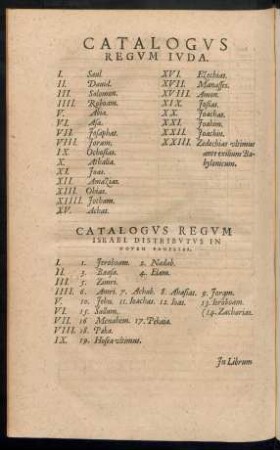 CATALOGVS
REGVM IVDA.
I. Saul
II. Dauid.
III. Salomon.
IIII. Roboam.
V. Abia.
VI. Asa.
VII. Josaphat.
VIII. Joram.
IX. Ochosias.
X. Athalia.
XI. Joas.
XII. Amazias.
XIII. Osias.
XIIII. Jotham.
XV. Achas.
XVI. Ezechias.
XVII. Manasses.
XVIII. Amon.
XIX. Josias.
XX. Joachas.
XXI. Joakim.
XXII. Joachin.
XXIII. Zedechias vltimus
ante exilium Ba-
bylonicum.
CATALOGVS REGVM
ISRAEL DISTRIBVTVS IN
NOVEM FAMILIAS.
I. 1. Jeroboam. 2. Nadab.
II. 3. Baasa. 4. Elam.
III. 5. Zamri.
IIII. 6. Amri. 7. Achab. 8. Ahasias. 9. Joram.
V. 10. Jehu. 11. Joachas. 12. Joas. 13. Jeroboam.
(14. Zacharias.
VI. 15. Sallum.
VII. 16 Menahem. 17. Pekaia.
VIII. 18. Peka.
IX. 19. Hosea vltimus.
In Librum